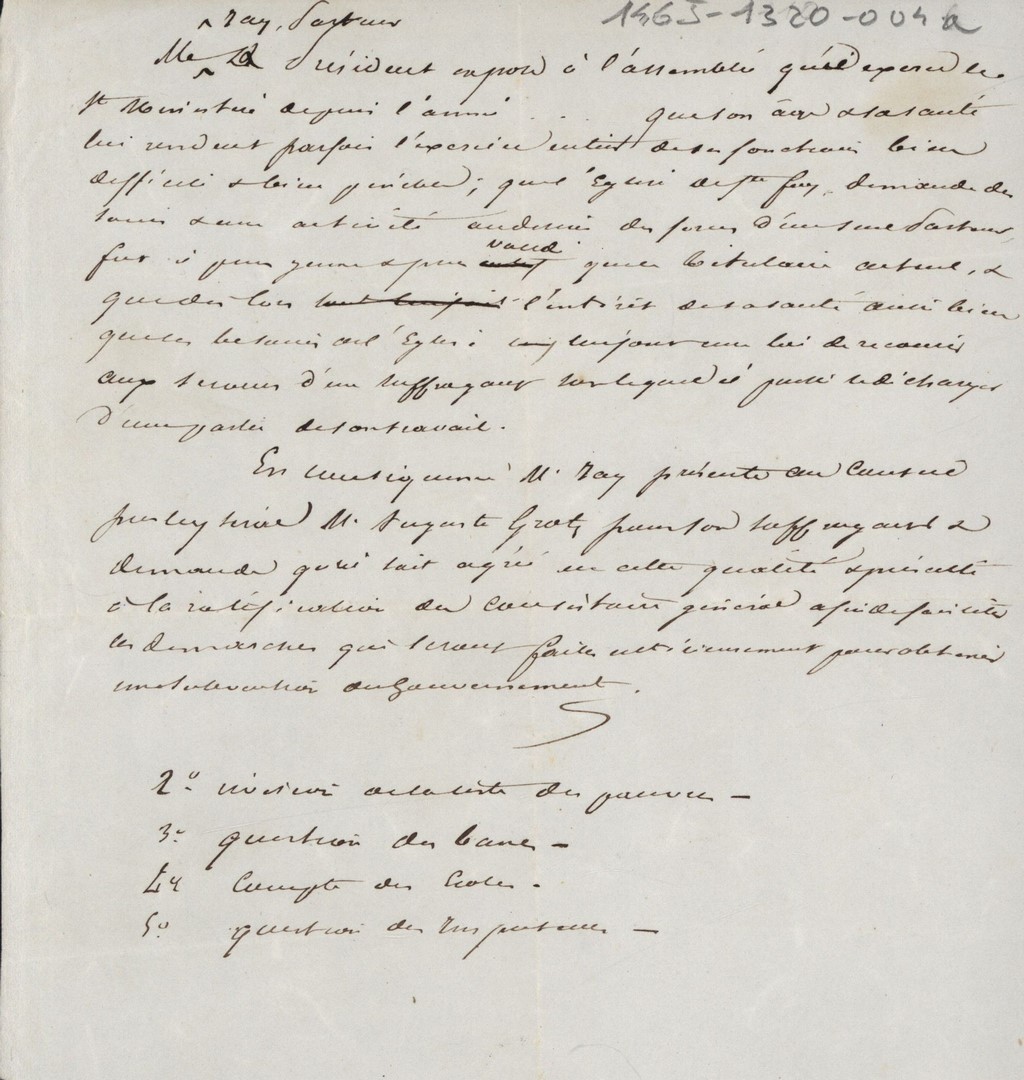 1463-1320-004a
Ray, Pasteur
Mr Le Président expose à l'assemblée qu'il exerce le
St Ministère depuis l'année . . . que son âge & sa santé
lui rendent parfois l'exercice entier de ses fonctions bien
difficile & bien pénible; que l'Eglise de Ste Foy, demande des
soins & une activité au dessus des forces d'un seul Pasteur,
fut il plus jeune & plus valide que le titulaire actuel, &
que dès lors l'intérêt de sa santé aussi bien
que les besoins de l'Eglise une loi de recourir
aux secours d'un suffragant sur lequel il puisse se décharger
d'une partie de son travail.
En conséquence Mr Ray présente au Conseil
presbytéral Mr Auguste Grotz pour son suffragant &
demande qu'il soit agréé en cette qualité & présenté
à la ratification du Consistoire général afin de faciliter
les démarches qui seront faites ultérieurement pour obtenir
une subvention du Gouvernement.
2º révision de la liste des pauvres —
3º question des bancs —
4º Compte des Ecoles .
5º question des —